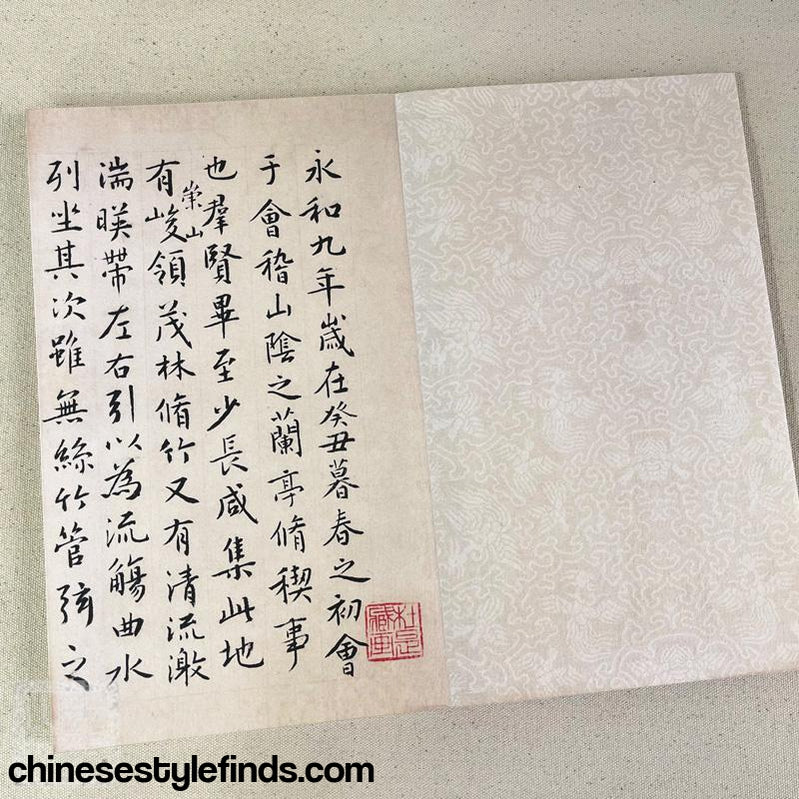 永和九年歲在癸丑暮春之初會
于會稽山陰之蘭亭脩稧事
也羣賢畢至少長咸集此地
有崇山峻領茂林脩竹又有清流激
湍暎帶左右引以為流觴曲水
列坐其次雖無絲竹管弦之
chinesestylefinds.com